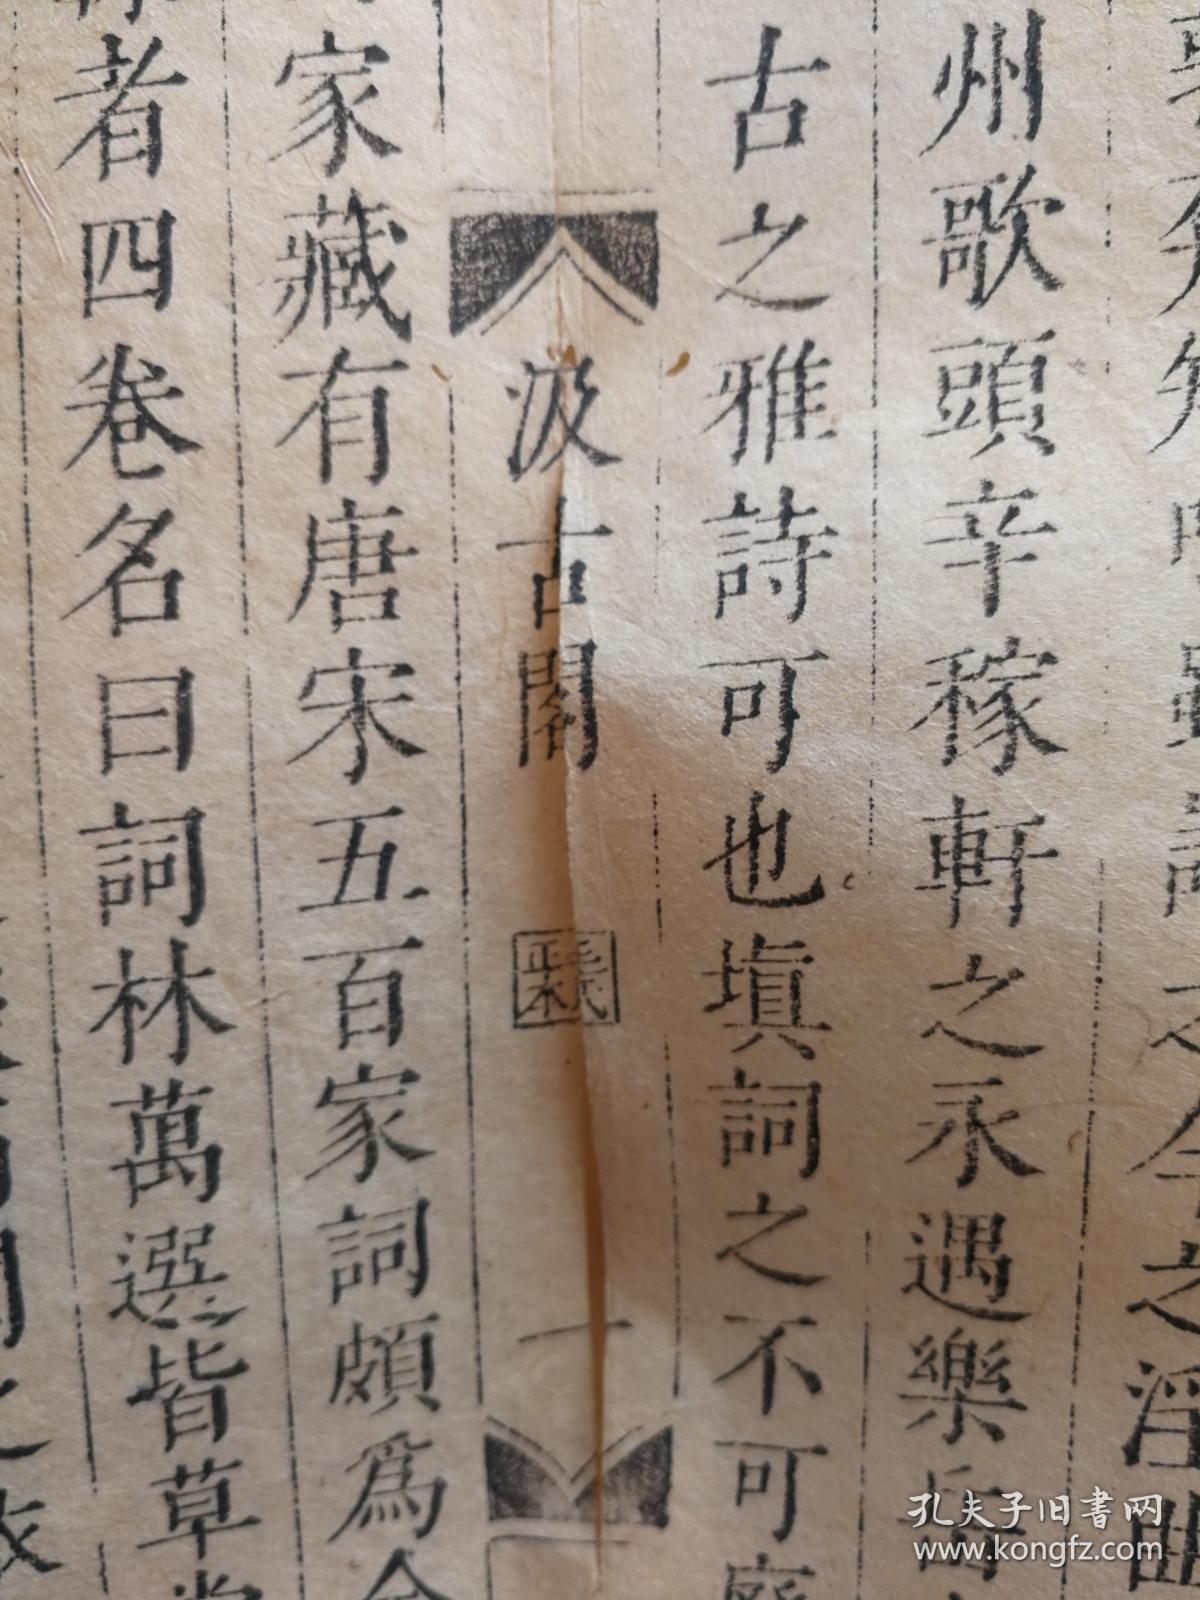 之今之淫曲
州歌頭辛稼軒之永遇樂岳
古之雅詩可也塡詞之不可
汲古閣
毛氏
正本
一
家藏有唐宋五百家詞頗爲
者四卷名曰詞林萬選皆草
孔夫子旧书网
www.kongfz.com